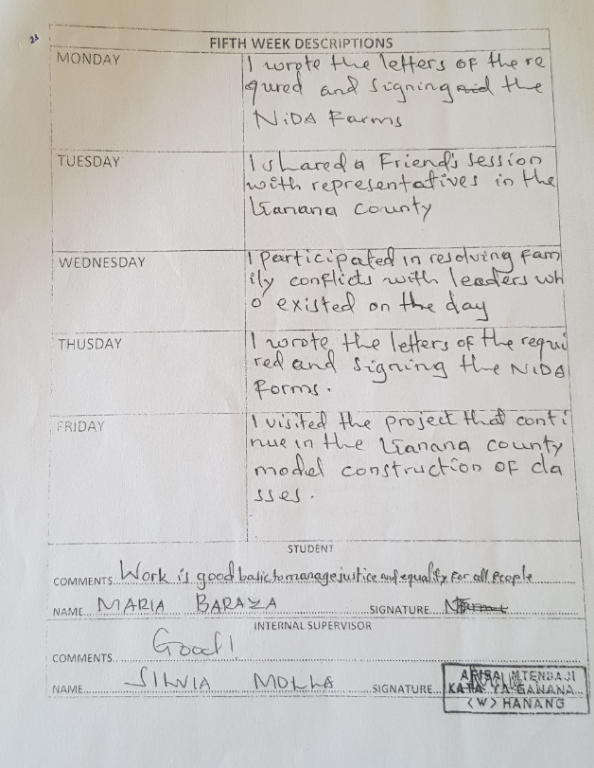 23
FIFTH WEEK DESCRIPTIONS
MONDAY
I wrote the letters of there
qured and signing the
NiDA Farms
TUESDAY
I shared a Friend's session
with representatives in the
Ganana county
WEDNESDAY
I participated in resolving fam
ily conflicts with leaders wh
o existed on the day
THUSDAY
I wrote the letters of the requi
red and signing the NiDA
Forms.
FRIDAY
I visited the project that conti
nue in the Ganana county
model construction of cla
sses.
STUDENT
COMMENTS Work is good basic to manage justice and equality for all people
NAME MARIA BARAZA SIGNATURE
INTERNAL SUPERVISOR
COMMENTS Good!
NAME SILVIA MOLLA SIGNATURE
AFISA MTENDAJI
KATA YA GANANA
<W> HANANG